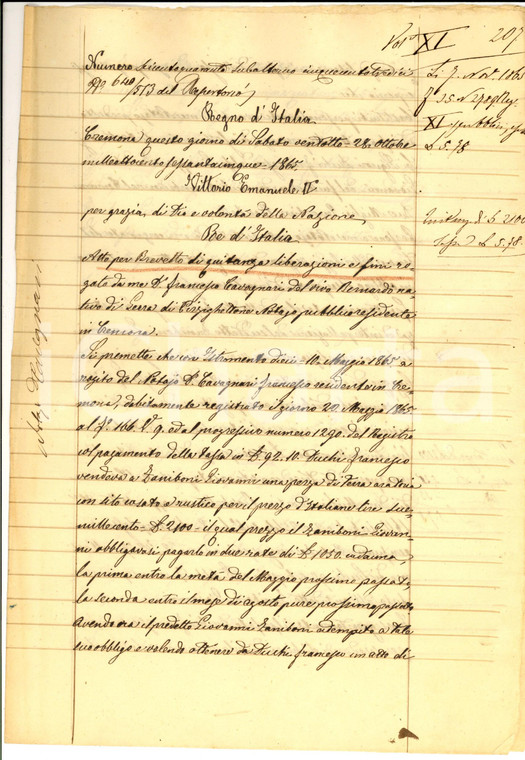 Vol. XI 207
Numero
N° 640/513 del Repertorio
Regno d'Italia
Cremona questo giorno di Sabato ventotto - 28. Ottobre
milleottocento sessantacinque - 1865.
Vittorio Emanuele II
per grazia di Dio e volontà della Nazione
Re d'Italia
Atto per Brevetto di quitanza e liberazioni e fini ro-
gato da me D.r Francesco Cavagnari del vivo Bernardo na-
tivo di Gera di Pizzighettone Notajo pubblico residente
in Cremona.
Si premette che con Istromento dieci - 10. Maggio 1865. a
rogito del Notajo D.r Cavagnari Francesco residente in Cre-
mona, debitamente registrato il giorno 22 Maggio 1865
al f.° 166. V. 9. ed al progressivo numero 1290. del Registro
col pagamento della tassa in £. 92.10. Duchi Francesco
vendeva a Zaniboni Giovanni una pezza di terra aratoria
con sito casato e rustico per il prezzo d'Italiane lire due-
mille cento - £. 2100 - il qual prezzo il Zaniboni Giovan-
ni obbligavasi pagarlo in due rate di £. 1050 cadauna,
la prima entro la metà del Maggio prossimo passato,
la seconda entro il mese di agosto pure prossimo passato
Avendo ora il predetto Giovanni Zaniboni adempito a tale
suo obbligo e volendo ottenere da Duchi Francesco un atto di
XI
£ 5.78
£ 2100
£ 5.78